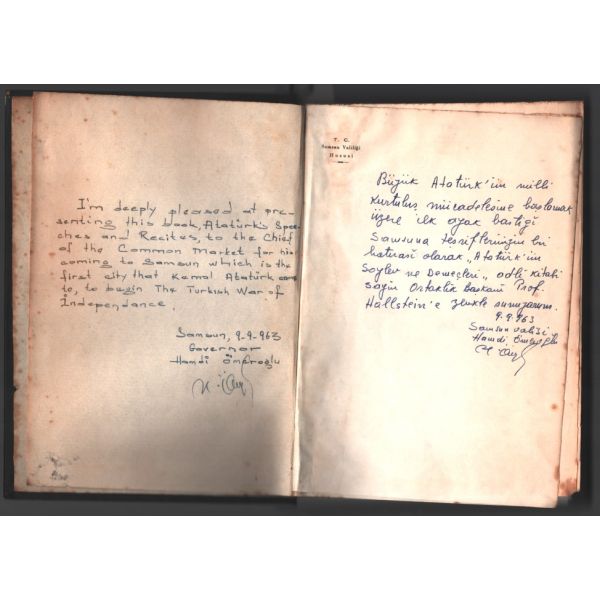 I'm deeply pleased at pre-
senting this book, Atatürk's Spee-
ches and Recites, to the Chief
of the Common Market for his
coming to Samsun which is the
first city that Kemal Atatürk came
to, to begin The Turkish War of
İndependance.
Samsun, 9-9-963
Governor
Hamdi Ömeroğlu
T. C.
Samsun Valiliği
Hususi
Büyük Atatürk'ün milli
Kurtuluş mücadelesine başlamak
üzere ilk ayak bastığı
Samsuna teşriflerinizin bir
hatırası olarak „Atatürk'ün
Söylev ve Demeçleri„ adlı kitabı
Sayın Ortaklık Başkanı Prof.
Hallstein'e sunuyorum.
9.9.963
Samsun Valisi
Hamdi Ömeroğlu